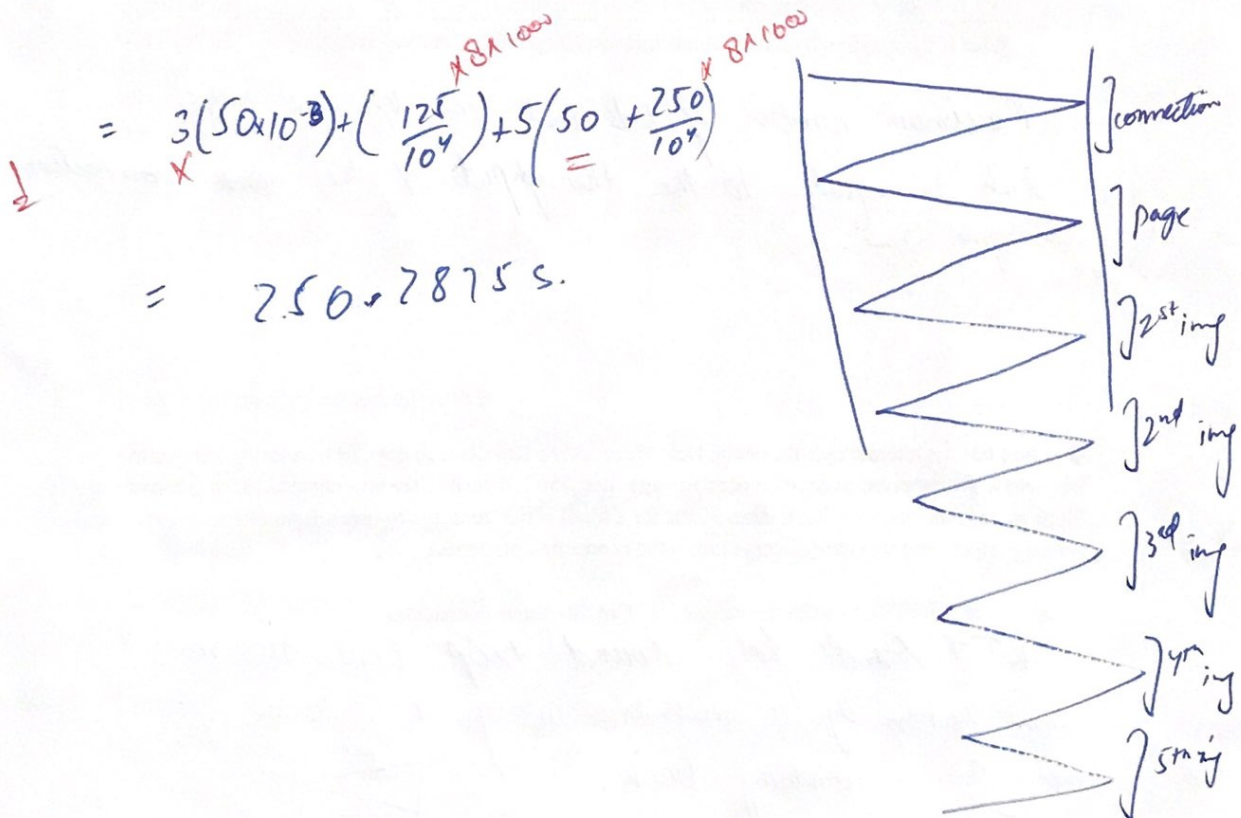 × 8×1000
× 8×1000
= 3(50×10⁻³)+(125/10⁴)+5(50+250/10⁴)
×
=
1
= 250.2875 s.
] connection
] page
] 2st img
] 2nd img
] 3rd img
] 4th img
] 5th img